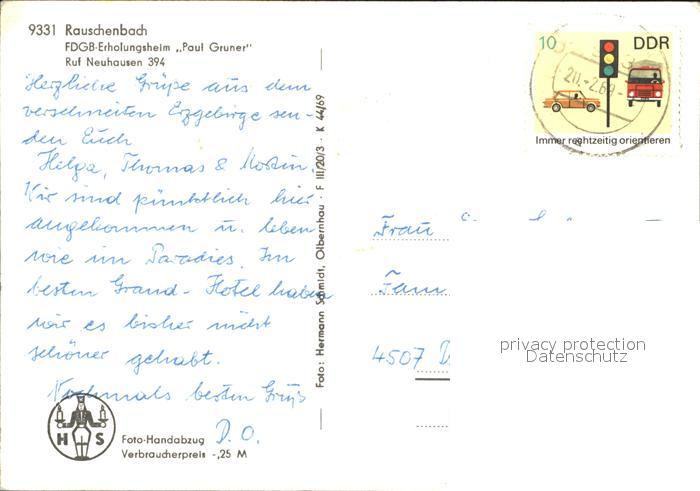 9331 Rauschenbach
FDGB-Erholungsheim „Paul Gruner"
Ruf Neuhausen 394
Herzliche Grüße aus dem
verschneiten Erzgebirge sen-
den Euch
Helga, Thomas &
Wir sind pünktlich hier
angekommen u. leben
wie im Paradies. Im
besten Grand-Hotel haben
wir es bisher nicht
schöner gehabt.
Nochmals besten Gruß
D. O.
H S
Foto-Handabzug
Verbraucherpreis -,25 M
Foto: Hermann Schmidt, Olbernhau · F III/20/3 · K 44/69
10 DDR
20.-2.69
Immer rechtzeitig orientieren
Frau
Fam
4507 D
privacy protection
Datenschutz